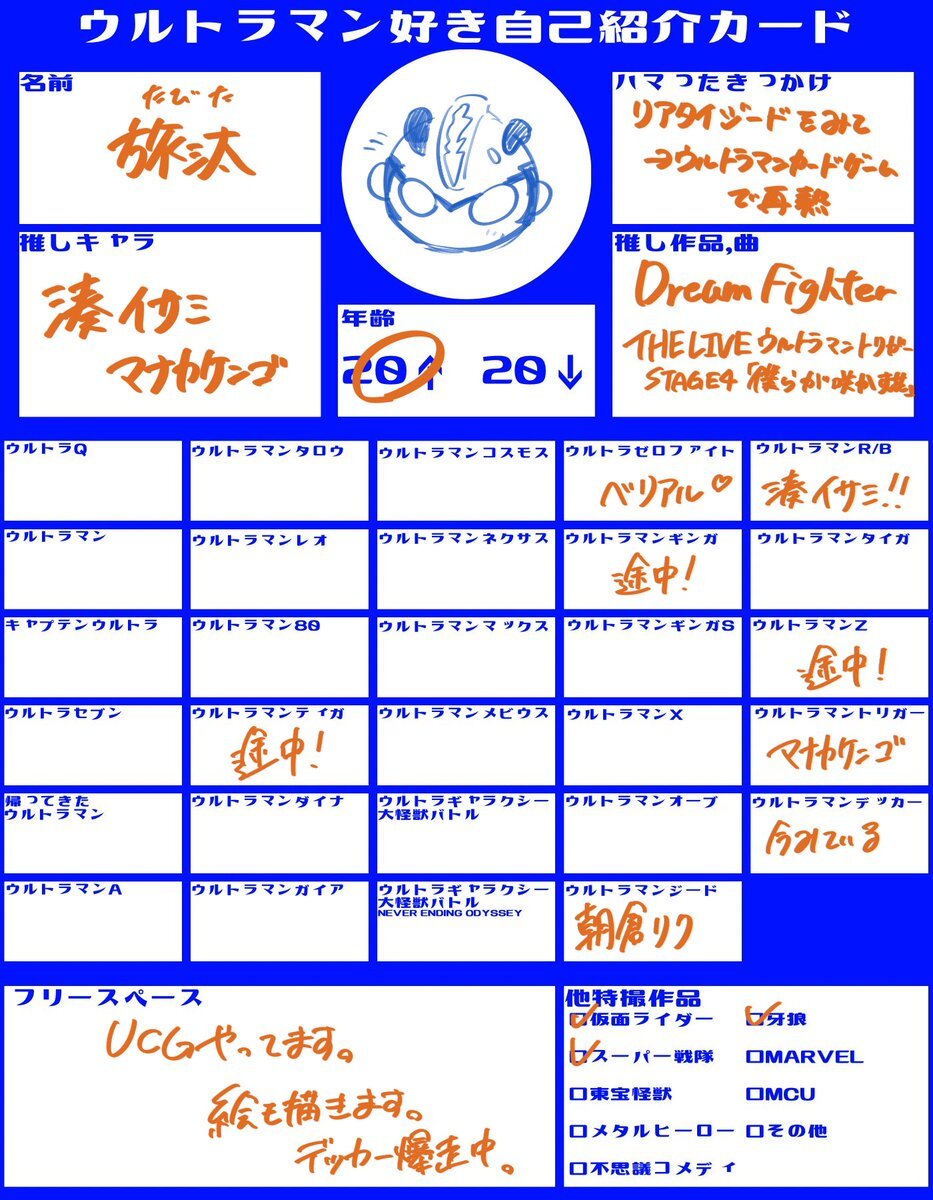 ウルトラマン好き自己紹介カード
名前
たびた
旅汰
ハマったきっかけ
リアタイジードをみて
→ウルトラマンカードゲーム
で再熱
推しキャラ
湊イサミ
マナカケンゴ
年齢
20↑ 20↓
推し作品,曲
Dream Fighter
THE LIVE ウルトラマントリガー
STAGE4「僕らが咲かす花」
ウルトラQ
ウルトラマンタロウ
ウルトラマンコスモス
ウルトラゼロファイト
ベリアル♡
ウルトラマンR/B
湊イサミ!!
ウルトラマン
ウルトラマンレオ
ウルトラマンネクサス
ウルトラマンギンガ
途中!
ウルトラマンタイガ
キャプテンウルトラ
ウルトラマン80
ウルトラマンマックス
ウルトラマンギンガS
ウルトラマンZ
途中!
ウルトラセブン
ウルトラマンティガ
途中!
ウルトラマンメビウス
ウルトラマンX
ウルトラマントリガー
マナカケンゴ
帰ってきた
ウルトラマン
ウルトラマンダイナ
ウルトラギャラクシー
大怪獣バトル
ウルトラマンオーブ
ウルトラマンデッカー
今みている
ウルトラマンA
ウルトラマンガイア
ウルトラギャラクシー
大怪獣バトル
NEVER ENDING ODYSSEY
ウルトラマンジード
朝倉リク
フリースペース
UCGやってます。
絵も描きます。
デッカー爆走中。
他特撮作品
☑仮面ライダー ☑牙狼
☑スーパー戦隊 □MARVEL
□東宝怪獣 □MCU
□メタルヒーロー □その他
□不思議コメディ